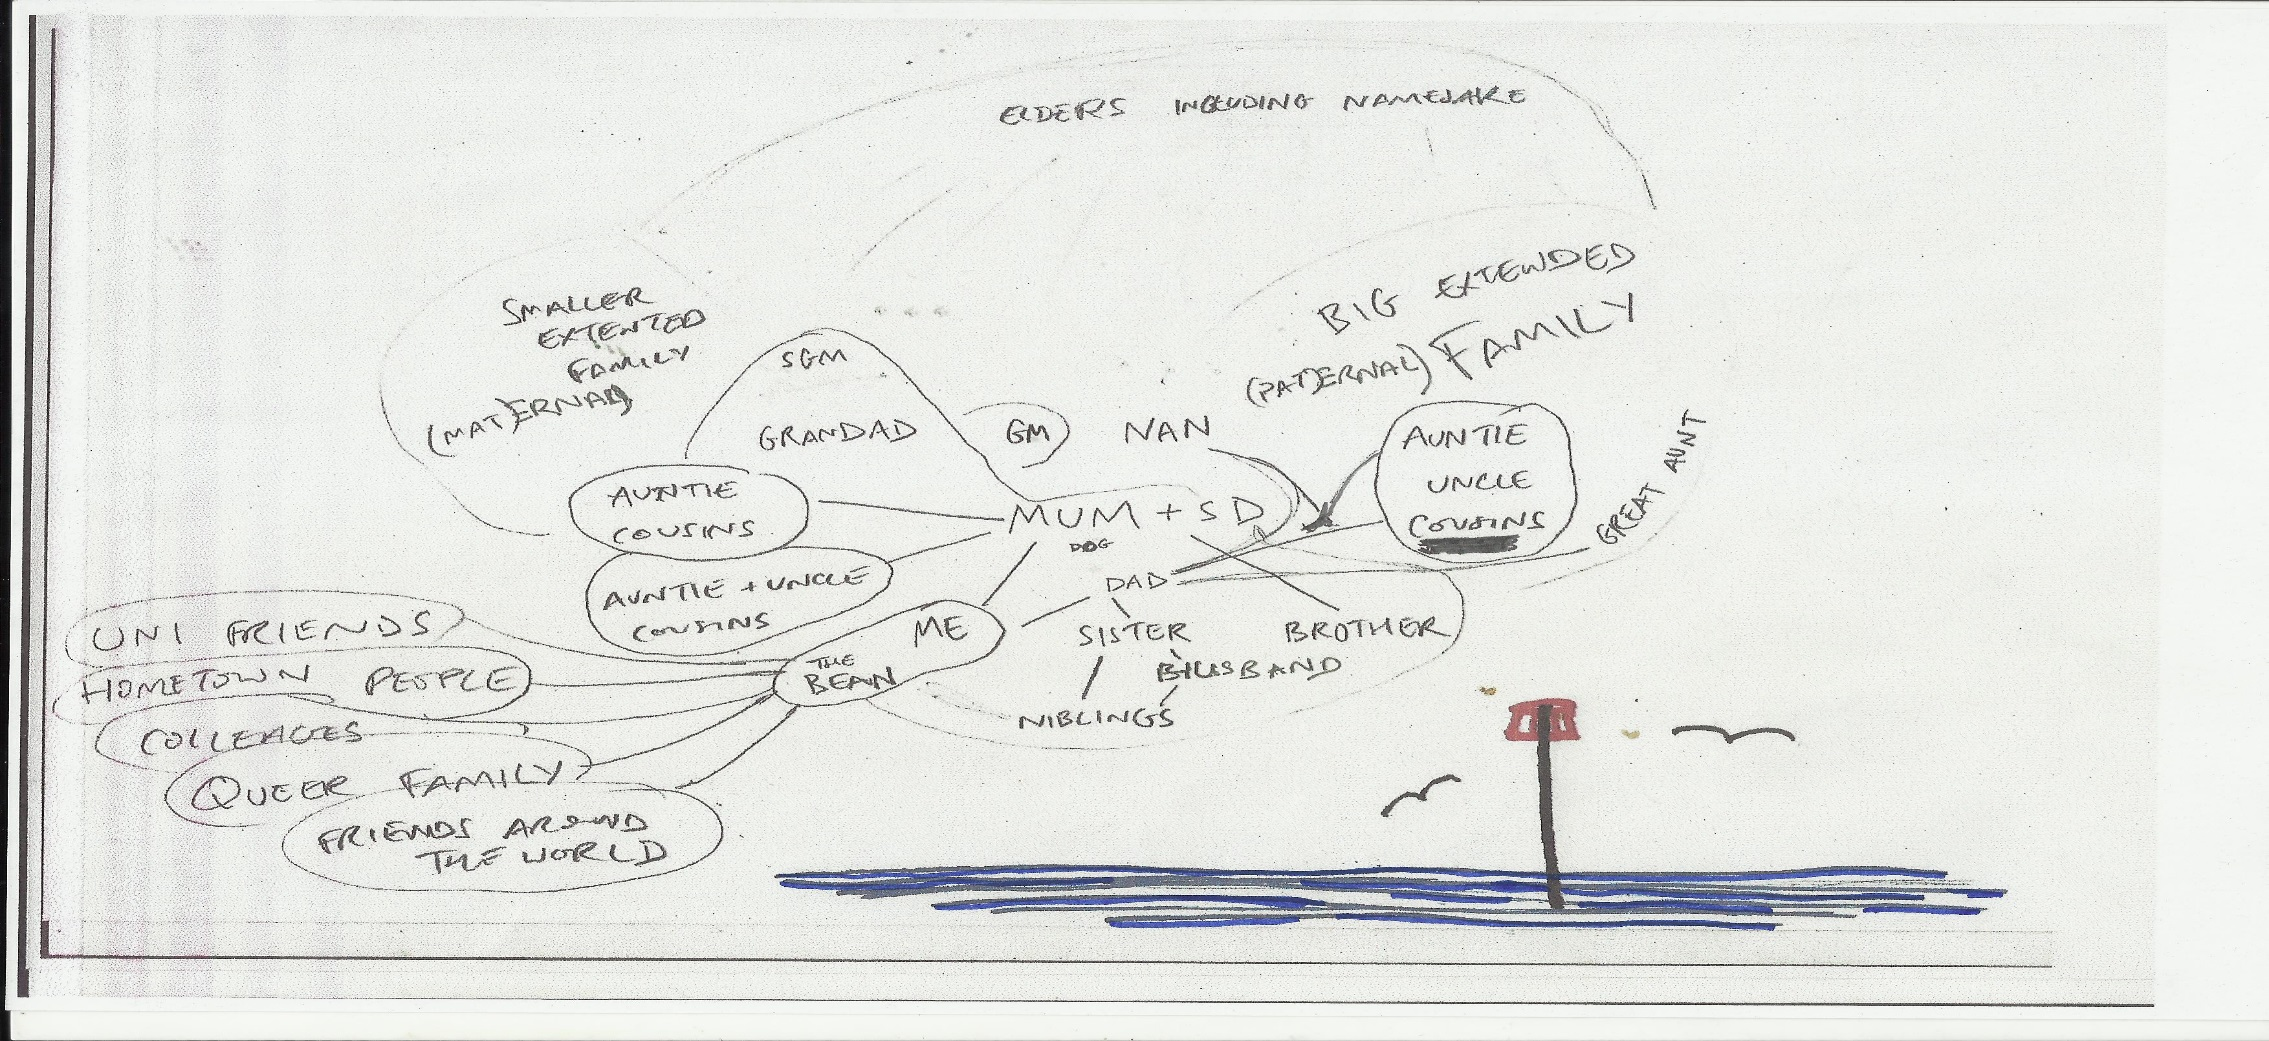 ELDERS INCLUDING NAMESAKE
SMALLER
EXTENTED
FAMILY
(MAT)ERNAL)
BIG EXTENDED
(PAT)ERNAL) FAMILY
SGM
GRANDAD
GM
NAN
AUNTIE
UNCLE
COUSINS
GREAT AUNT
AUNTIE
COUSINS
MUM + SD
DOG
AUNTIE + UNCLE
COUSINS
DAD
ME
THE
BEAN
SISTER
BROTHER
NIBLINGS
UNI FRIENDS
HOMETOWN PEOPLE
COLLEAGES
QUEER FAMILY
FRIENDS AROUND
THE WORLD